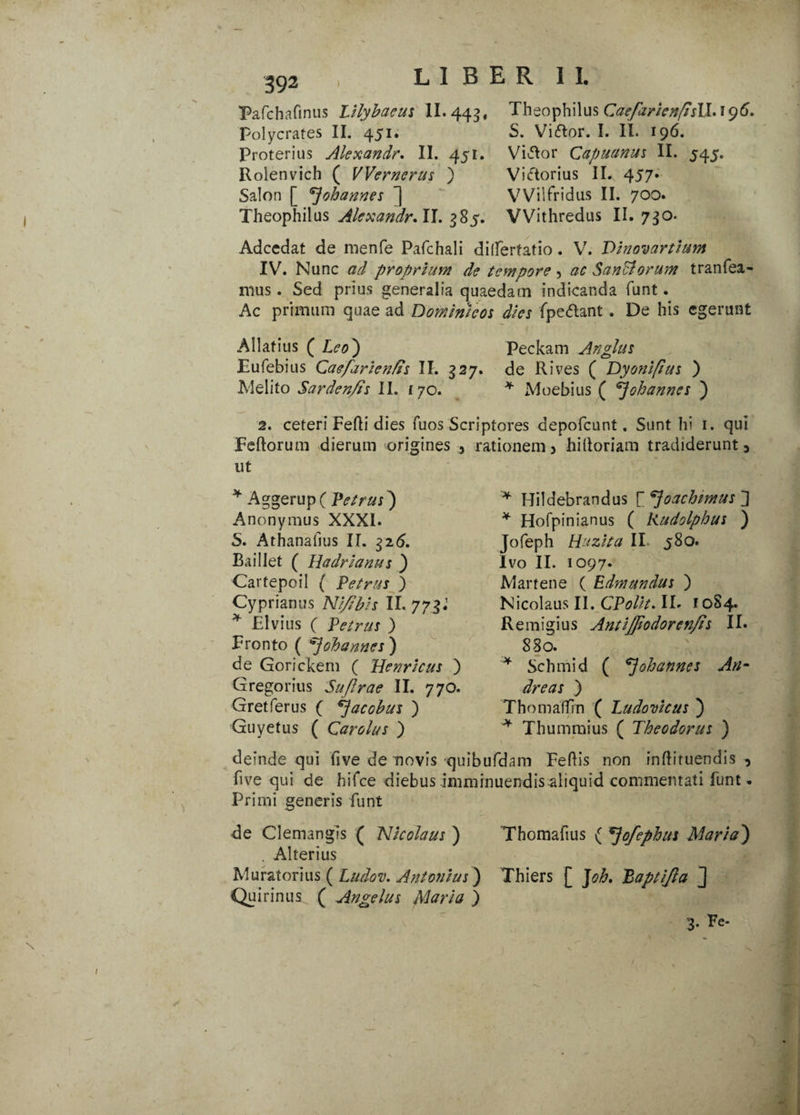 392 LIBER II.
Paſchaſinus Lilybaeus II. 443,
Polycrates II. 451.
Proterius Alexandr. II. 451.
Rolenvich ( VVernerus )
Salon [ Johannes ]
Theophilus Alexandr. II. 385.
Theophilus Caeſarienſis II. 196.
S. Victor. I. II. 196.
Victor Capuanus II. 545.
Victorius II. 457.
VVilfridus II. 700.
VVithredus II. 730.
Adcedat de menſe Paſchali diſſertatio. V. Dinovartium
IV. Nunc ad proprium de tempore, ac Sanctorum tranſea-
mus. Sed prius generalia quaedam indicanda ſunt.
Ac primum quae ad Dominicos dies ſpectant. De his egerunt
Allatius ( Leo )
Euſebius Caeſarienſis II. 327.
Melito Sardenſis II. 170.
Peckam Anglus
de Rives ( Dyoniſius )
* Moebius ( Johannes )
2. ceteri Feſti dies ſuos Scriptores depoſcunt. Sunt hi 1. qui
Feſtorum dierum origines, rationem, hiſtoriam tradiderunt,
ut
* Aggerup ( Petrus )
Anonymus XXXI.
S. Athanaſius II. 326.
Baillet ( Hadrianus )
Cartepoil ( Petrus )
Cyprianus Niſibis II. 773.
* Elvius ( Petrus )
Fronto ( Johannes )
de Gorickem ( Henricus )
Gregorius Suſtrae II. 770.
Gretſerus ( Jacobus )
Guyetus ( Carolus )
* Hildebrandus [ Joachimus ]
* Hoſpinianus ( Rudolphus )
Joſeph Huzita II. 580.
Ivo II. 1097.
Martene ( Edmundus )
Nicolaus II. CPolit. II. 1084.
Remigius Antiſſiodorenſis II.
880.
* Schmid ( Johannes An-
dreas )
Thomaſſin ( Ludovicus )
* Thummius ( Theodorus )
deinde qui ſive de novis quibuſdam Feſtis non inſtituendis,
ſive qui de hiſce diebus imminuendis aliquid commentati ſunt.
Primi generis ſunt
de Clemangis ( Nicolaus )
Alterius
Muratorius ( Ludov. Antonius )
Quirinus ( Angelus Maria )
Thomaſius ( Joſephus Maria )
Thiers [ Joh. Baptiſta ]
3. Fe-